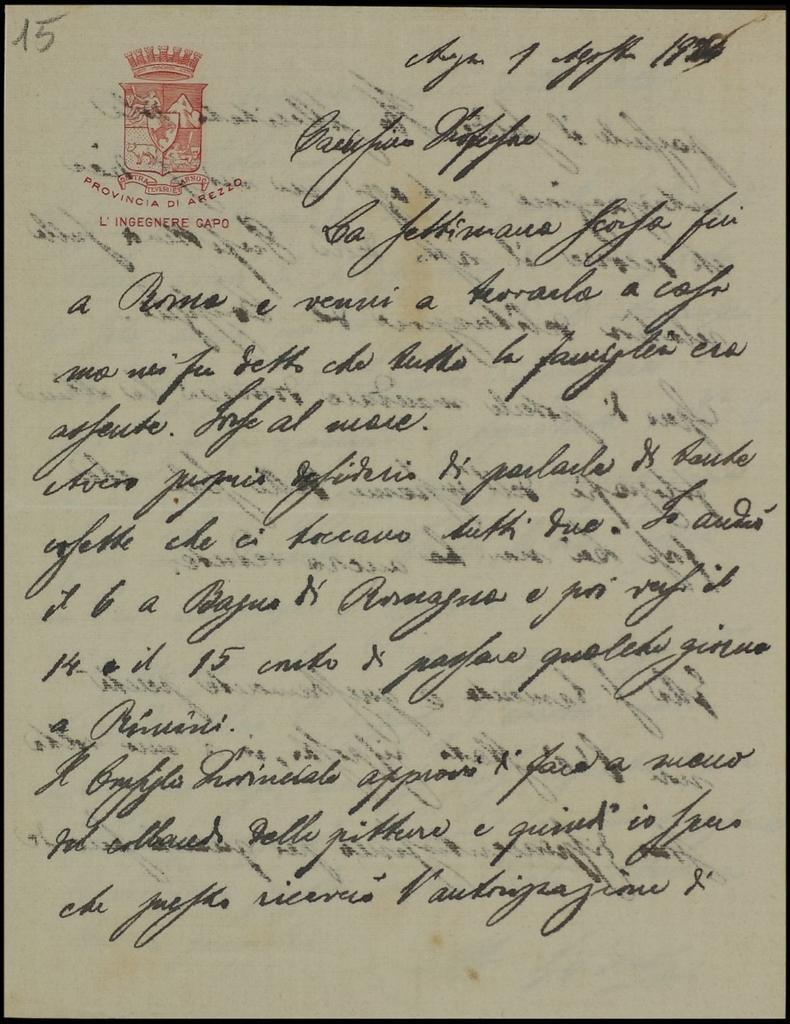 15
1 Agosto
PROVINCIA DI AREZZO
L'INGEGNERE CAPO
Carissimo Professore
La settimana scorsa fui
a Roma e venni a trovarla a casa
ma mi fu detto che tutta la famiglia era
assente. Forse al mare.
Avevo proprio desiderio di parlarle di tante
cosette che ci toccano tutti due. Io andrò
il 6 a Bagno di Romagna e poi verso il
14 o il 15 conto di passare qualche giorno
a Rimini.
Il Consiglio Provinciale approvò di fare a meno
del collaudo delle pitture e quindi io spero
che presto riceverò l'autorizzazione di